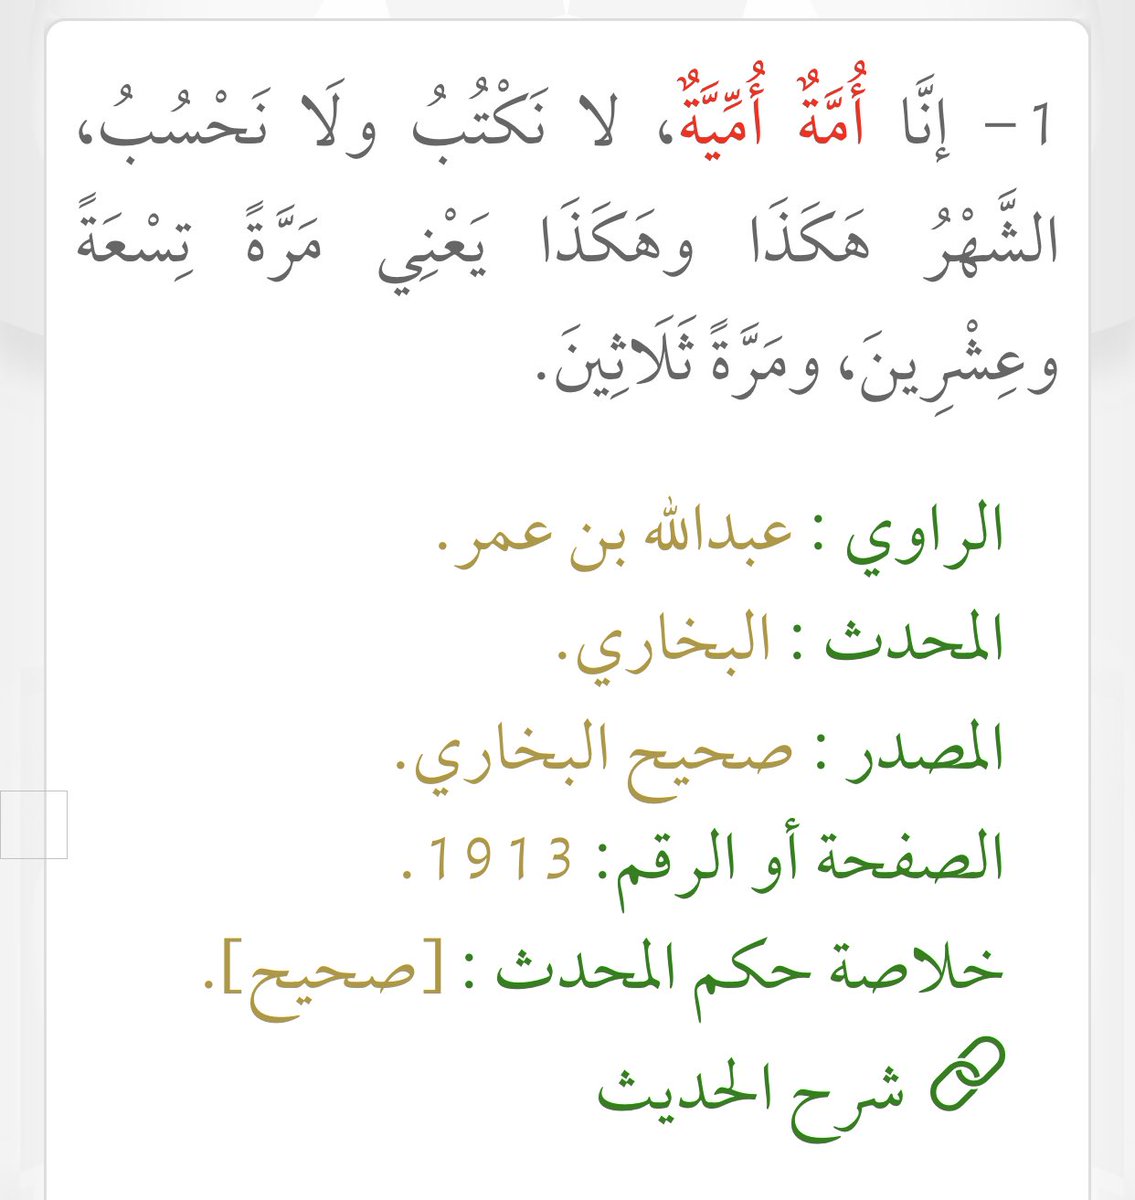 1 - إنَّا أُمَّةٌ أُمِّيَّةٌ، لا نَكْتُبُ ولَا نَحْسُبُ،
الشَّهْرُ هَكَذَا وهَكَذَا يَعْنِي مَرَّةً تِسْعَةً
وعِشْرِينَ، ومَرَّةً ثَلَاثِينَ.
الراوي : عبدالله بن عمر.
المحدث : البخاري.
المصدر : صحيح البخاري.
الصفحة أو الرقم: 1913.
خلاصة حكم المحدث : [صحيح].
شرح الحديث